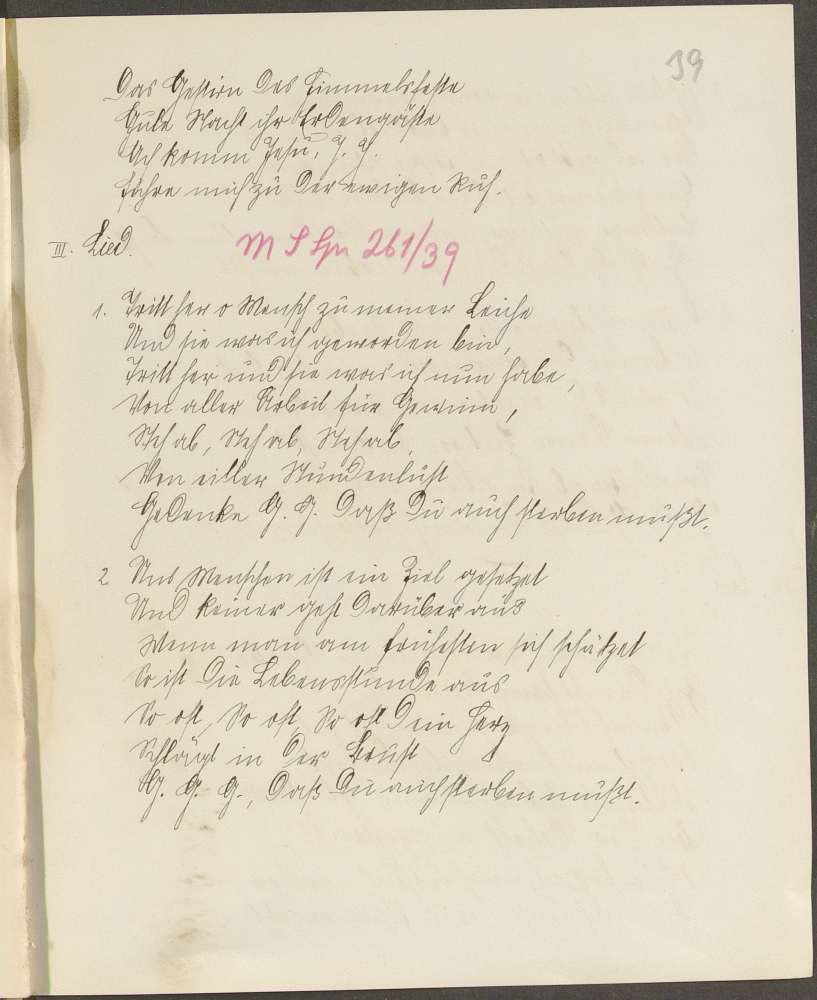 39
Das Gestirn des Himmelsfeste
Gute Nacht ihr Erdengäste
Ach komm Jesu, J. J.
führe mich zu der ewigen Ruh.
III. Lied.
M S Spr 261/39
1. Tritt her o Mensch zu meiner Leiche
Und sie was ich geworden bin,
Tritt her und sie was ich nun habe,
Von aller Arbeit für Gewinn,
Steh ab, Steh ab, Steh ab,
Von eitler Sündenlust
Gedenke G. G. daß Du auch sterben mußt.
2 Uns Menschen ist ein Ziel gesetzet
Und keiner geht darüber aus
Wenn man am frühesten sich schätzet
So ist die Lebensstunde aus
So oft, So oft, So oft Dein Herz
Schlägt in der Brust
G. G. G., daß Du auch sterben mußt.